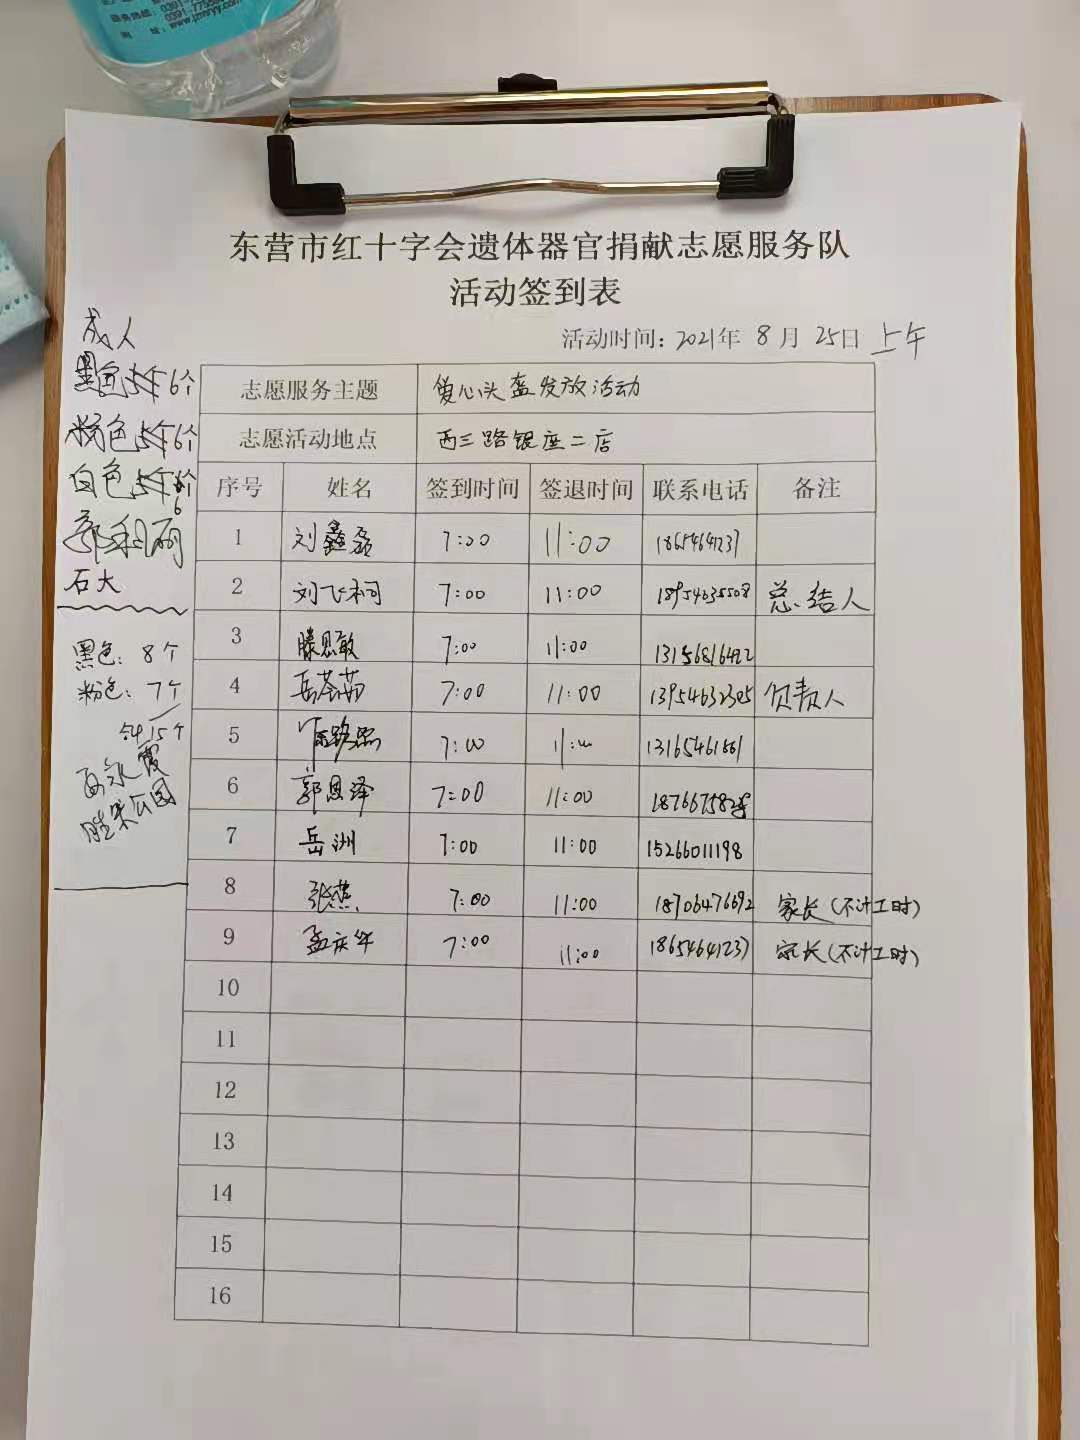 东营市红十字会遗体器官捐献志愿服务队
活动签到表
活动时间：2021年 8月 25日 上午
志愿服务主题 爱心头盔发放活动
志愿活动地点 西三路银座二店
序号 姓名 签到时间 签退时间 联系电话 备注
1 刘鑫磊 7:00 11:00 18654641237
2 刘飞 7:00 11:00 18954635508 总结人
3 滕思敏 7:00 11:00 13156816422
4 岳荟茹 7:00 11:00 13954632305 负责人
5 7:00 11:00 13165461861
6 郭恩泽 7:00 11:00
7 岳洲 7:00 11:00 15266011198
8 张燕 7:00 11:00 18706476692 家长（不计工时）
9 孟庆华 7:00 11:00 18654641237 家长（不计工时）
10
11
12
13
14
15
16
成人
黑色 6个
粉色 6个
白色 6个
郭利丽
石大
黑色：8个
粉色：7个
15个
永霞
胜采公园